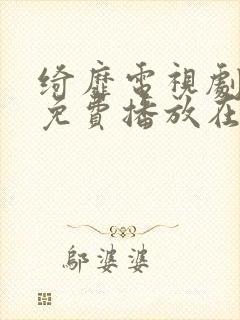 绮靡電視劇
免費播放在
鄔婆婆